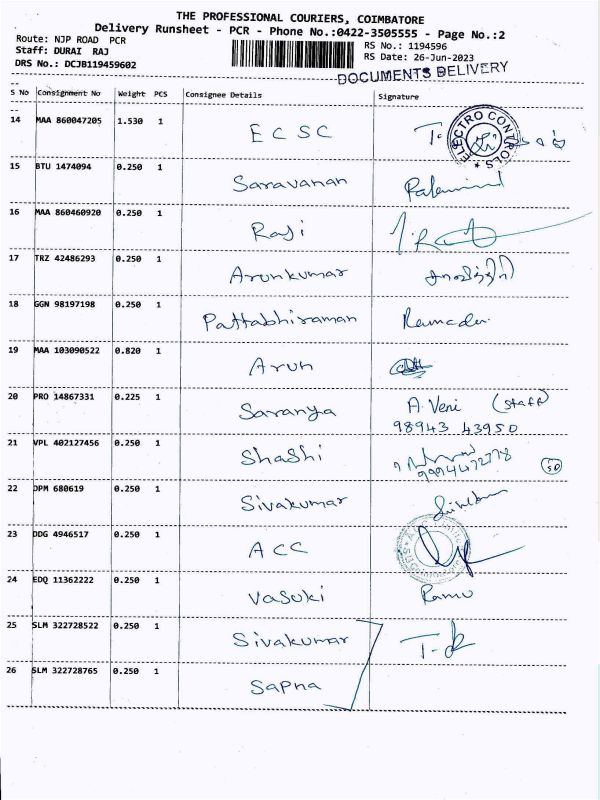 THE PROFESSIONAL COURIERS, COIMBATORE
Delivery Runsheet - PCR - Phone No.:0422-3505555 - Page No.:2
Route: NJP ROAD PCR
RS No.: 1194596
Staff: DURAI RAJ
RS Date: 26-Jun-2023
DRS No.: DCJB119459602
DOCUMENTS DELIVERY
S No Consignment No Weight PCS Consignee Details Signature
14 MAA 860047205 1.530 1 ECSC T.
ELECTRO CONTROLS
15 BTU 1474094 0.250 1 Saravanan
16 MAA 860460920 0.250 1 Raji
17 TRZ 42486293 0.250 1 Arunkumar
18 GGN 98197198 0.250 1 Pattabhiraman
19 MAA 103090522 0.820 1 Arun
20 PRO 14867331 0.225 1 Saranya A. Veni (Staff)
98943 43950
21 VPL 402127456 0.250 1 Shashi
9994472778
22 DPM 680619 0.250 1 Sivakumar
23 DDG 4946517 0.250 1 ACC
24 EDQ 11362222 0.250 1 Vasuki Ramu
25 SLM 322728522 0.250 1 Sivakumar
26 SLM 322728765 0.250 1 Sapna